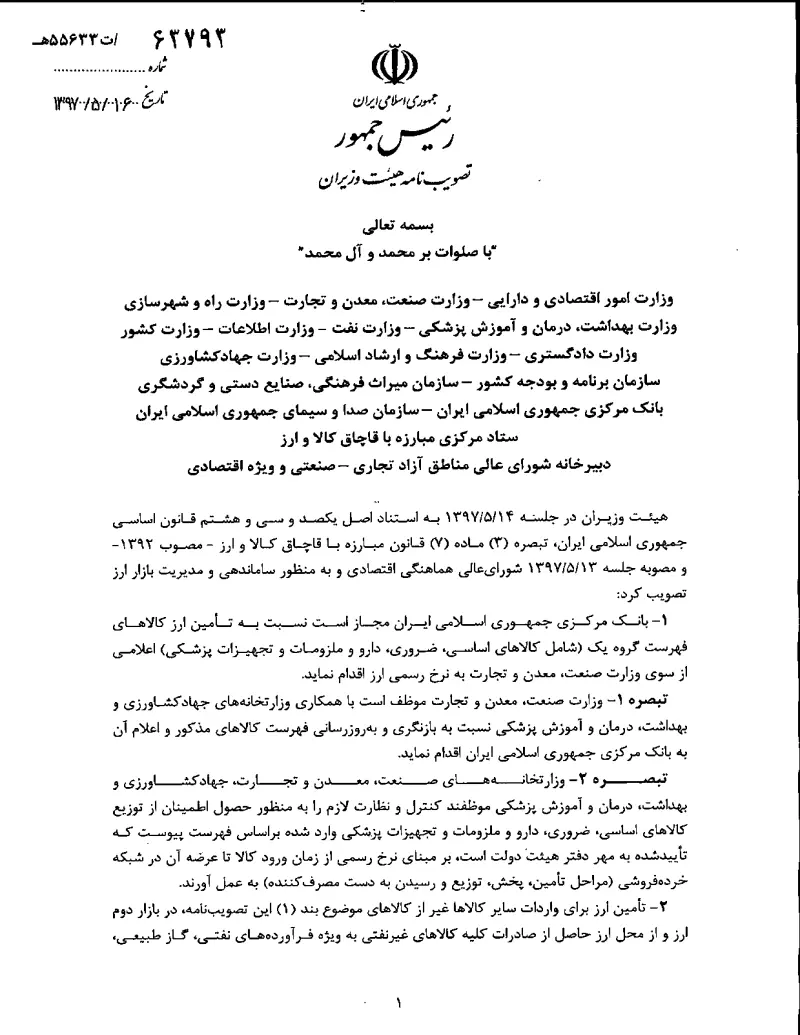 ۶۳۷۹۳ /ت۵۵۶۳۳هـ
شماره ......................
تاریخ ۱۳۹۷/۰۵/۱۶
جمهوری اسلامی ایران
رئیس جمهور
تصویب نامه هیئت وزیران
بسمه تعالی
"با صلوات بر محمد و آل محمد"
وزارت امور اقتصادی و دارایی – وزارت صنعت، معدن و تجارت – وزارت راه و شهرسازی
وزارت بهداشت، درمان و آموزش پزشکی – وزارت نفت – وزارت اطلاعات – وزارت کشور
وزارت دادگستری – وزارت فرهنگ و ارشاد اسلامی – وزارت جهادکشاورزی
سازمان برنامه و بودجه کشور – سازمان میراث فرهنگی، صنایع دستی و گردشگری
بانک مرکزی جمهوری اسلامی ایران – سازمان صدا و سیمای جمهوری اسلامی ایران
ستاد مرکزی مبارزه با قاچاق کالا و ارز
دبیرخانه شورای عالی مناطق آزاد تجاری – صنعتی و ویژه اقتصادی
هیئت وزیران در جلسه ۱۳۹۷/۵/۱۴ به استناد اصل یکصد و سی و هشتم قانون اساسی
جمهوری اسلامی ایران، تبصره (۳) ماده (۷) قانون مبارزه با قاچاق کالا و ارز - مصوب ۱۳۹۲-
و مصوبه جلسه ۱۳۹۷/۵/۱۳ شورای‌عالی هماهنگی اقتصادی و به منظور ساماندهی و مدیریت بازار ارز
تصویب کرد:
۱- بانک مرکزی جمهوری اسلامی ایران مجاز است نسبت به تأمین ارز کالاهای
فهرست گروه یک (شامل کالاهای اساسی، ضروری، دارو و ملزومات و تجهیزات پزشکی) اعلامی
از سوی وزارت صنعت، معدن و تجارت به نرخ رسمی ارز اقدام نماید.
تبصره ۱- وزارت صنعت، معدن و تجارت موظف است با همکاری وزارتخانه‌های جهادکشاورزی و
بهداشت، درمان و آموزش پزشکی نسبت به بازنگری و به‌روزرسانی فهرست کالاهای مذکور و اعلام آن
به بانک مرکزی جمهوری اسلامی ایران اقدام نماید.
تبصره ۲- وزارتخانه‌های صنعت، معدن و تجارت، جهادکشاورزی و
بهداشت، درمان و آموزش پزشکی موظفند کنترل و نظارت لازم را به منظور حصول اطمینان از توزیع
کالاهای اساسی، ضروری، دارو و ملزومات و تجهیزات پزشکی وارد شده براساس فهرست پیوست که
تأییدشده به مهر دفتر هیئت دولت است، بر مبنای نرخ رسمی از زمان ورود کالا تا عرضه آن در شبکه
خرده‌فروشی (مراحل تأمین، پخش، توزیع و رسیدن به دست مصرف‌کننده) به عمل آورند.
۲- تأمین ارز برای واردات سایر کالاها غیر از کالاهای موضوع بند (۱) این تصویب‌نامه، در بازار دوم
ارز و از محل ارز حاصل از صادرات کلیه کالاهای غیرنفتی به ویژه فرآورده‌های نفتی، گاز طبیعی،
۱